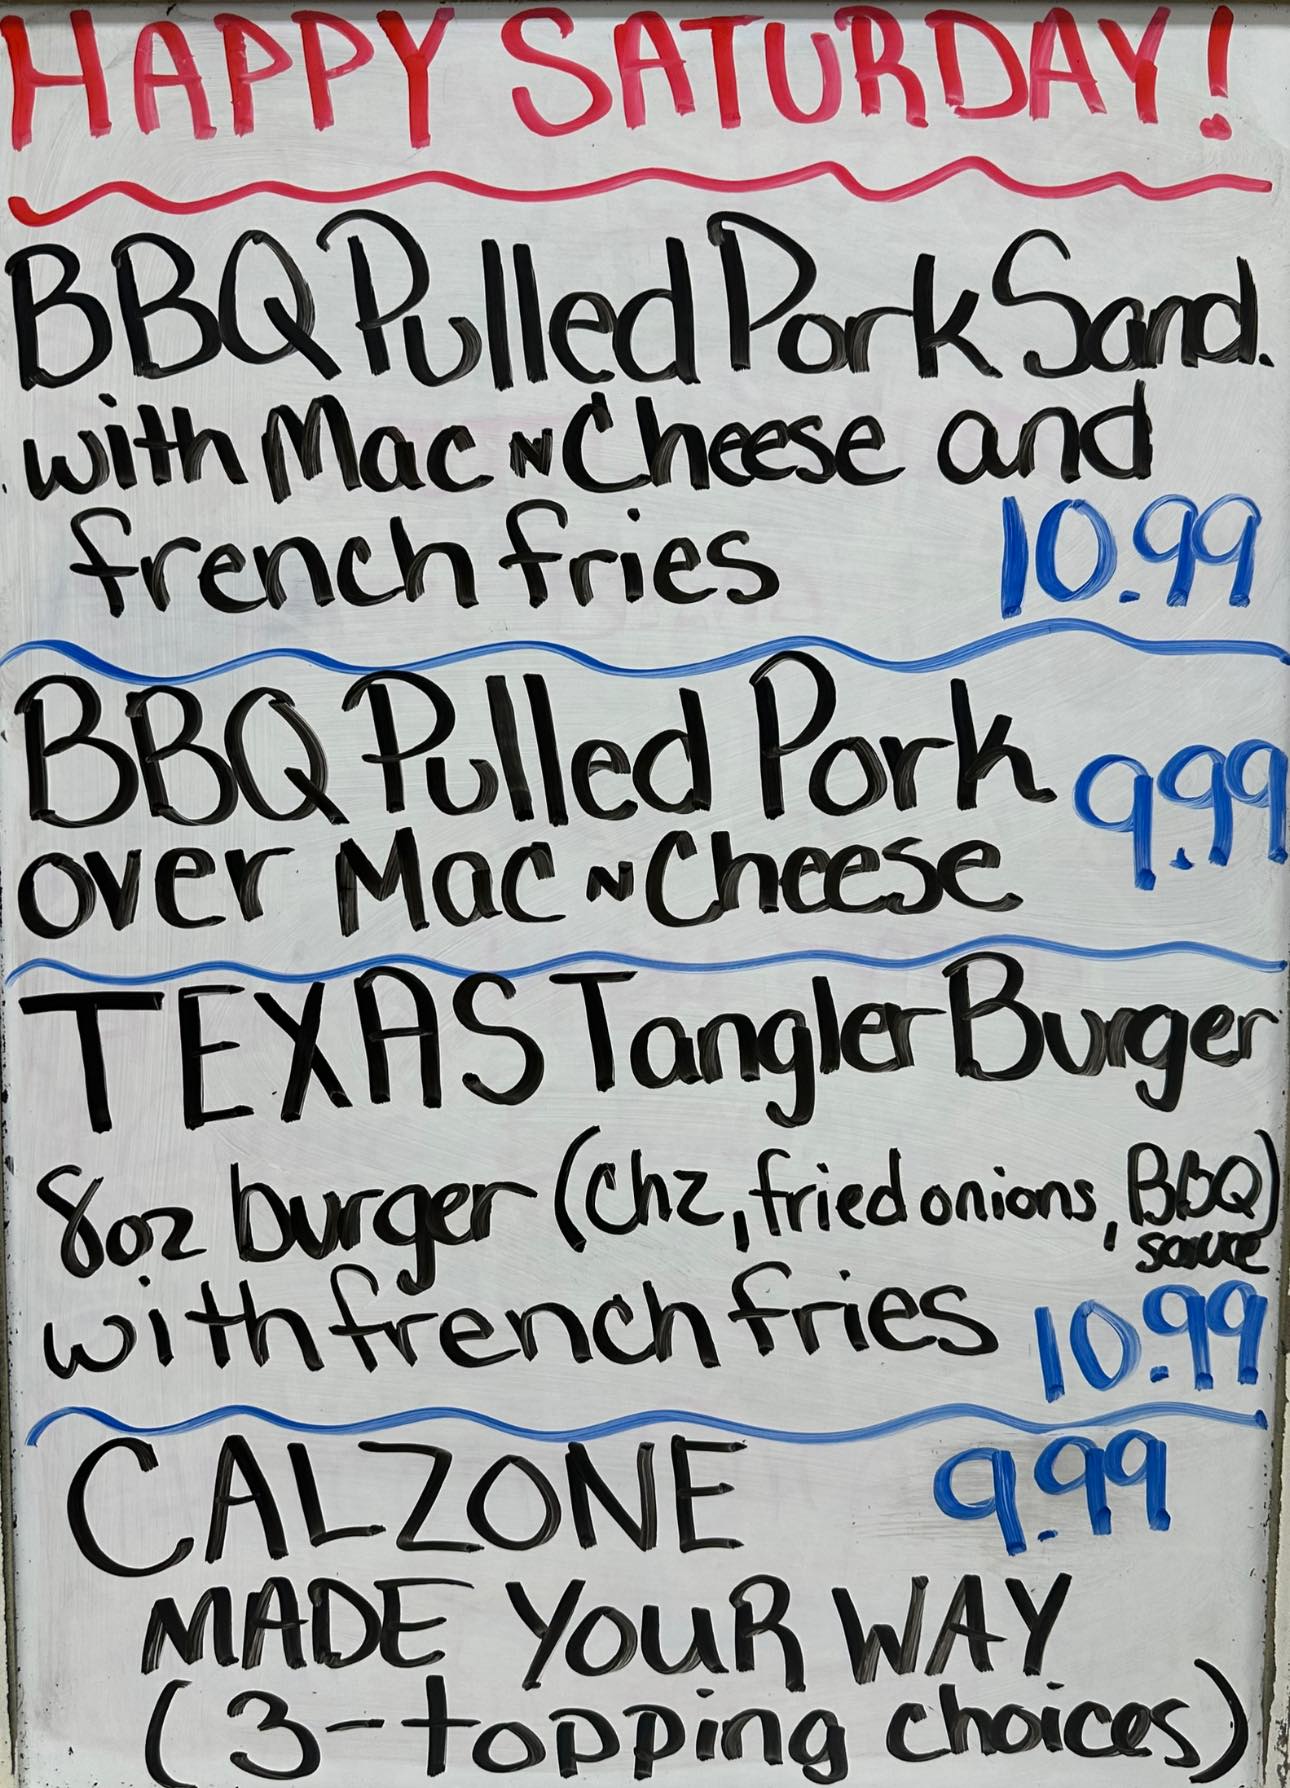 HAPPY SATURDAY!
BBQ Pulled Pork Sand.
with Mac N Cheese and
french fries 10.99
BBQ Pulled Pork 9.99
over Mac N Cheese
TEXAS Tangler Burger
8oz burger (chz, fried onions, BBQ)
sauce
with french fries 10.99
CALZONE 9.99
MADE YOUR WAY
(3-topping choices)